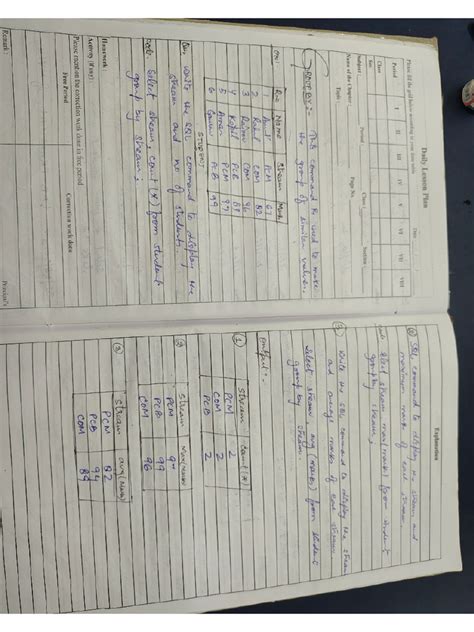 Daily Lesson Plan
Please fill the grid before according to your time table
Date :
Period I II III IV V VI VII VIII
Class
Subject : Period : Class : Section :
Name of the Chapter : Page No.
Topic :
GROUP BY :- This command is used to make
the group of similar values.
Ex:-
R.no Name Stream Marks
1
2 Rahul COM 82
3 COM 96
4 Kapil PCB
5 Aman PCM
6 Gaurav PCB 99
STUDENT
Que: Write the SQL command to display the
stream and no of students.
Sol: Select stream, count(*) from student
group by stream;
Homework :
Activity (if any) :
Please mention the correction work done in free period
Free Period Correction work done
Remark : Principal's
Explanation
SQL command to display the stream and
maximum marks of each stream
Select stream, max(marks) from student
group by stream;
Write the SQL command to display the stream
and average marks of each stream.
Select stream, avg(marks) from student
group by stream.
output :-
①
stream count(*)
PCM 2
PCB 2
COM 2
②
stream Max(marks)
PCM 97
PCB 99
COM 96
③
stream avg(Marks)
PCM 82
PCB 94
COM 89